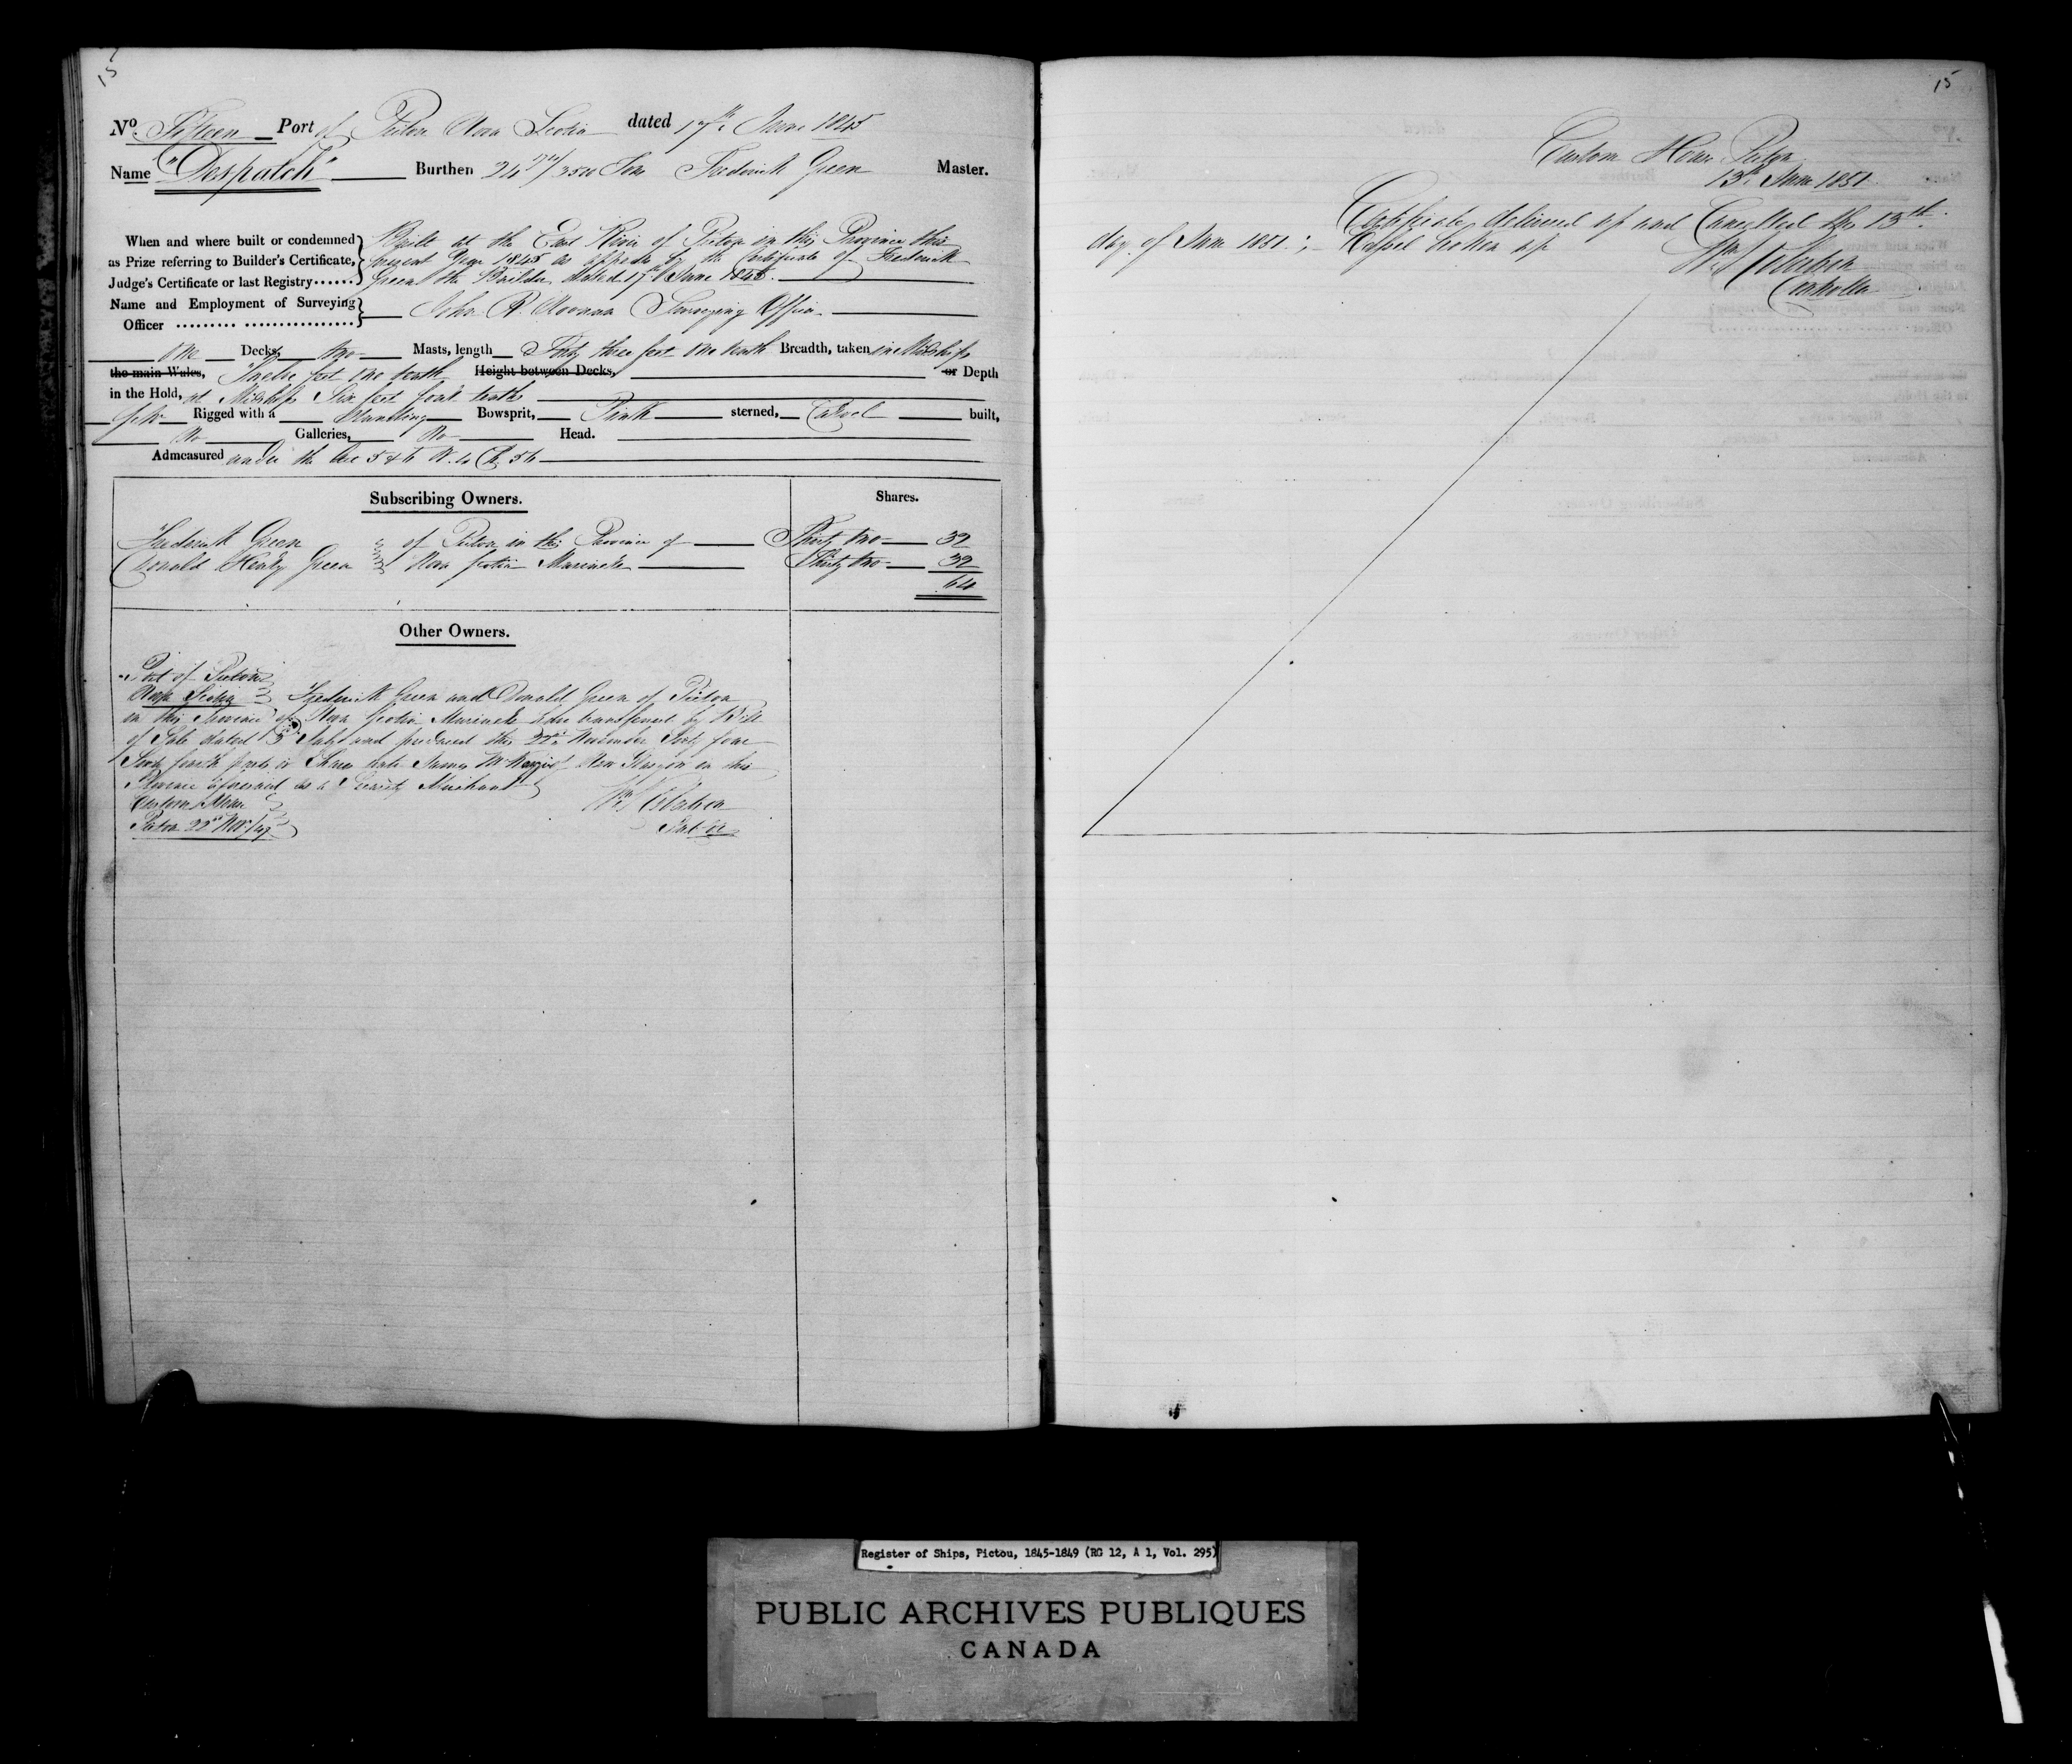 15
No. Fifteen Port of Pictou Nova Scotia dated 17th June 1845
Name "Despatch" Burthen 24 /3500 Tons Frederick Green Master.
When and where built or condemned as Prize referring to Builder's Certificate, Judge's Certificate or last Registry......
Built at the East River of Pictou in this Province this
present Year 1845 as appears by the Certificate of Frederick
Green the Builder dated 17th June 1845.
Name and Employment of Surveying Officer ......... ................. John R. Noonan Surveying Officer
One Decks, two Masts, length Forty three feet one tenth Breadth, taken in Midships
the main Wales, Twelve feet one tenth Height between Decks, or Depth
in the Hold, at Midships Six feet four tenths
Schr Rigged with a Standing Bowsprit, Pink sterned, Carvel built,
No Galleries, No Head.
Admeasured under the Act 5 & 6 W. 4 Ch. 56
Subscribing Owners. Shares.
Frederick Green of Pictou in this Province of Thirty two 32
Donald Henry Green Nova Scotia Mariners Thirty two 32
64
Other Owners.
Port of Pictou
Nova Scotia Frederick Green and Donald Green of Pictou
in this Province of Nova Scotia Mariners have transferred by Bill
of Sale dated 5 July and produced this 22nd November Sixty four
Sixty fourth parts or Shares unto James McKenzie of New Glasgow in this
Province aforesaid as a Security Merchant
Custom House
Pictou 22nd Novr/47
15
Custom House Pictou
13th June 1851
Certificate delivered up and Cancelled this 13th
day of June 1851; Vessel broken up
Controller
Register of Ships, Pictou, 1845-1849 (RG 12, A 1, Vol. 295)
PUBLIC ARCHIVES PUBLIQUES
CANADA